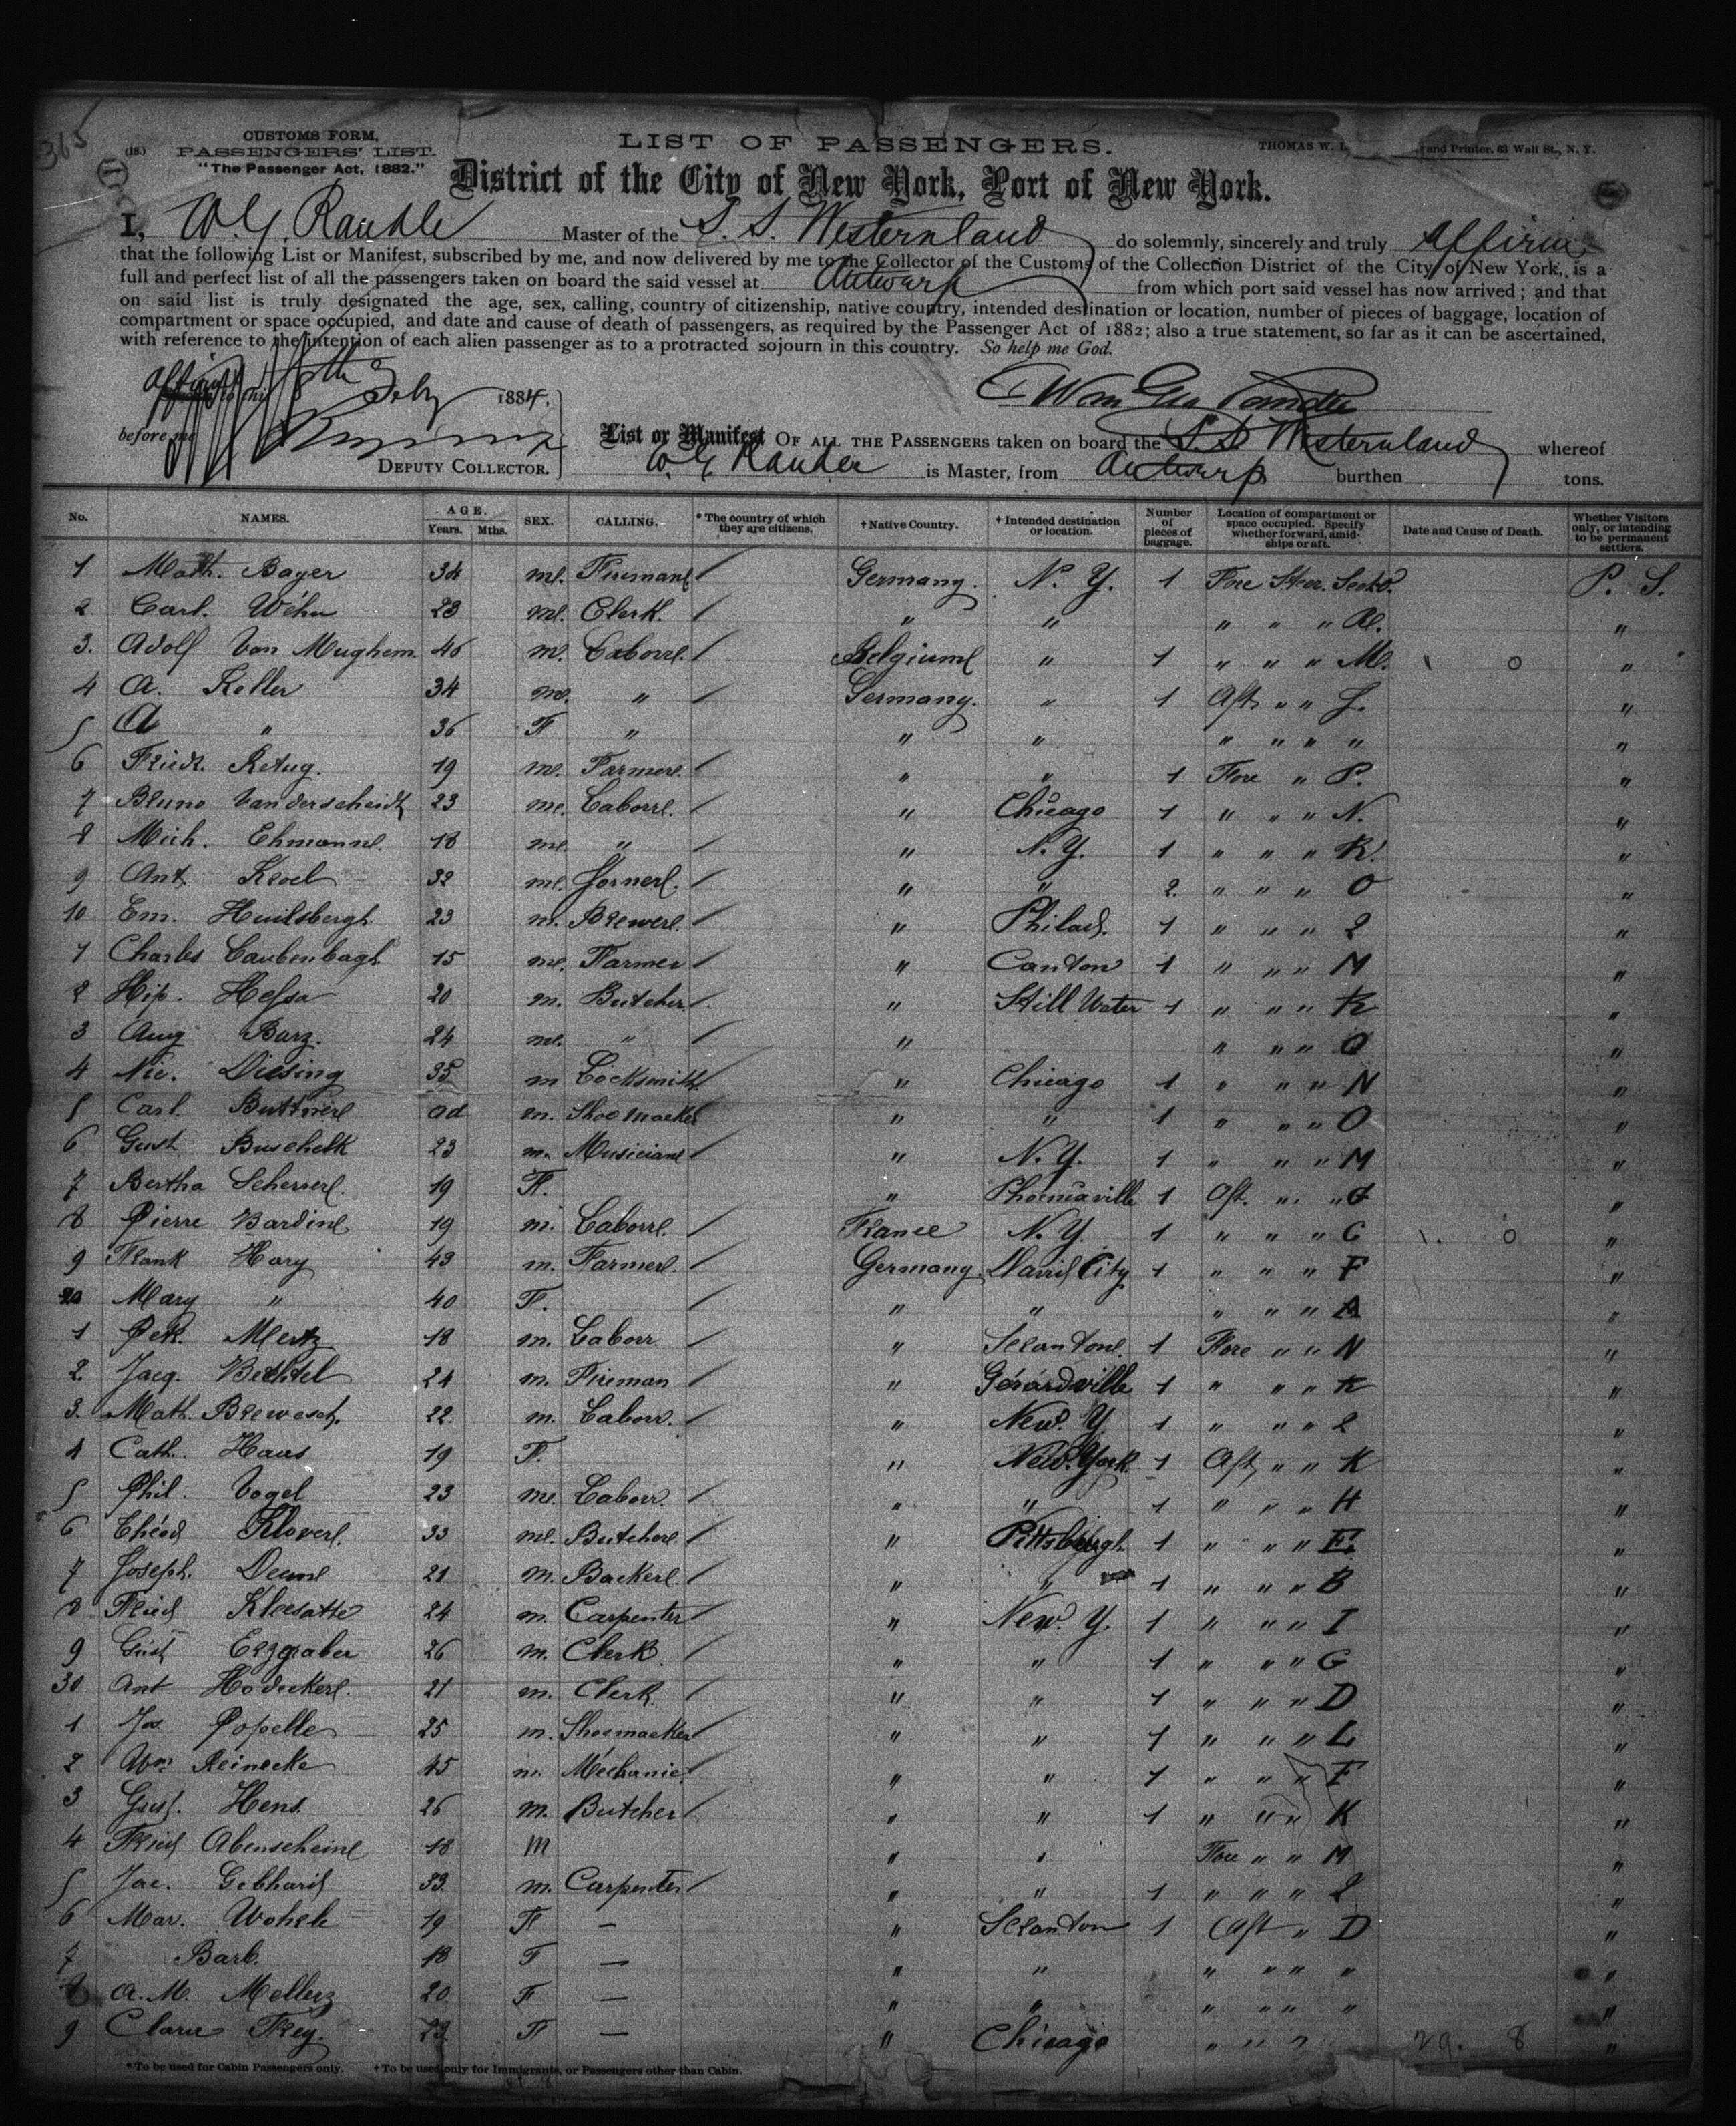 365
CUSTOMS FORM.
(18.) PASSENGERS' LIST.
"The Passenger Act, 1882."
LIST OF PASSENGERS.
THOMAS W. and Printer, 63 Wall St., N. Y.
District of the City of New York, Port of New York.
I, W. G. Randle Master of the S. S. Westernland do solemnly, sincerely and truly affirm
that the following List or Manifest, subscribed by me, and now delivered by me to the Collector of the Customs of the Collection District of the City of New York, is a
full and perfect list of all the passengers taken on board the said vessel at Antwerp from which port said vessel has now arrived; and that
on said list is truly designated the age, sex, calling, country of citizenship, native country, intended destination or location, number of pieces of baggage, location of
compartment or space occupied, and date and cause of death of passengers, as required by the Passenger Act of 1882; also a true statement, so far as it can be ascertained,
with reference to the intention of each alien passenger as to a protracted sojourn in this country. So help me God.
this th Feby 1884.
before me
DEPUTY COLLECTOR.
List or Manifest OF ALL THE PASSENGERS taken on board the S. S. Westernland whereof
W. G. Rander is Master, from Antwerp burthen tons.
No. NAMES. AGE. Years. Mths. SEX. CALLING. * The country of which they are citizens. † Native Country. † Intended destination or location. Number of pieces of baggage. Location of compartment or space occupied. Specify whether forward, amidships or aft. Date and Cause of Death. Whether Visitors only, or intending to be permanent settlers.
1 Math. Bayer 34 m. Fireman Germany. N. Y. 1 Fore Steer. P. S.
2 Carl. Wéhn 23 m. Clerk. " " " " " "
3. Adolf Van Mughem 46 m. Laborr. Belgium " 1 " " " M. "
4 A. Keller 34 m. " Germany. " 1 Aft " " J. "
5 A " 36 F " " " " " " " "
6 Friedr. Retug. 19 m. Farmer. " " 1 Fore " P. "
7 Bruno Vanderscheidt 23 m. Laborr. " Chicago 1 " " " N. "
8 Mich. Ehmann 18 m. " " N. Y. 1 " " " K. "
9 Ant. Kroel 32 m. Joiner. " " 2. " " " O "
10 Em. Huilsbergh 23 m. Brewer. " Philad. 1 " " " L "
1 Charles Laubenbagh 15 m. Farmer " Canton 1 " " " M "
2 Hip. Hessa 20 m. Butcher. " Still Water 1 " " " K "
3 Aug Barz. 24 m. " " " " " O "
4 Nic. Diesing 35 m Locksmith " Chicago 1 " " " N "
5 Carl. Buttner ad m. Shoemacker " " 1 " " " O "
6 Gust Buschelk 23 m. Musician " N. Y. 1 " " " M "
7 Bertha Scherrer. 19 F. " Phoenixville 1 Aft. " " "
8 Pierre Bardin 19 m. Laborr. France N. Y. 1 " " " C "
9 Frank Hary 43 m. Farmer. Germany David City 1 " " " F "
20 Mary " 40 F. " " " " " A "
1 Pet. Mertz 18 m. Laborr. " Scranton. 1 Fore " " N "
2. Jacq. Bechtel 21 m. Fireman " Gérardville 1 " " " K "
3. Math. Brewesch. 22 m. Laborr. " New. Y 1 " " " L "
4 Cath. Haus 19 F. " New. York 1 Aft " " K "
5 Phil. Vogel 23 m. Laborr. " " 1 " " " H "
6 Théod Klover. 33 m. Butcher. " Pittsburgh 1 " " " E. "
7 Joseph. Deun 21 m. Backer. " " 1 " " " B "
8 Fried Kleesatte 24 m. Carpenter " New. Y. 1 " " " I "
9 Gust Erzgraber 26 m. Clerk. " " 1 " " " G "
30 Ant Hodecker. 21 m. Clerk " " 1 " " " D "
1 Jos. Popelle 25 m. Shoemacker " " 1 " " " L "
2 Wm. Reinecke 45 m. Méchanic. " " 1 " " " F "
3 Gust. Hens. 26 m. Butcher " " 1 " " " K "
4 Fried Abenschein 18 m " " Fore " " M "
5 Jac. Gebhard 33 m. Carpenter " " 1 " " " L "
6 Mar. Wohrle 19 F — " Scranton 1 Aft " D "
7 Barb. 18 F — " " " " " " "
8 A. M. Mellerz 20 F — " " " " " " "
9 Clara Frey. 23 F — " Chicago " " " 29. 8 "
* To be used for Cabin Passengers only. † To be used only for Immigrants, or Passengers other than Cabin.